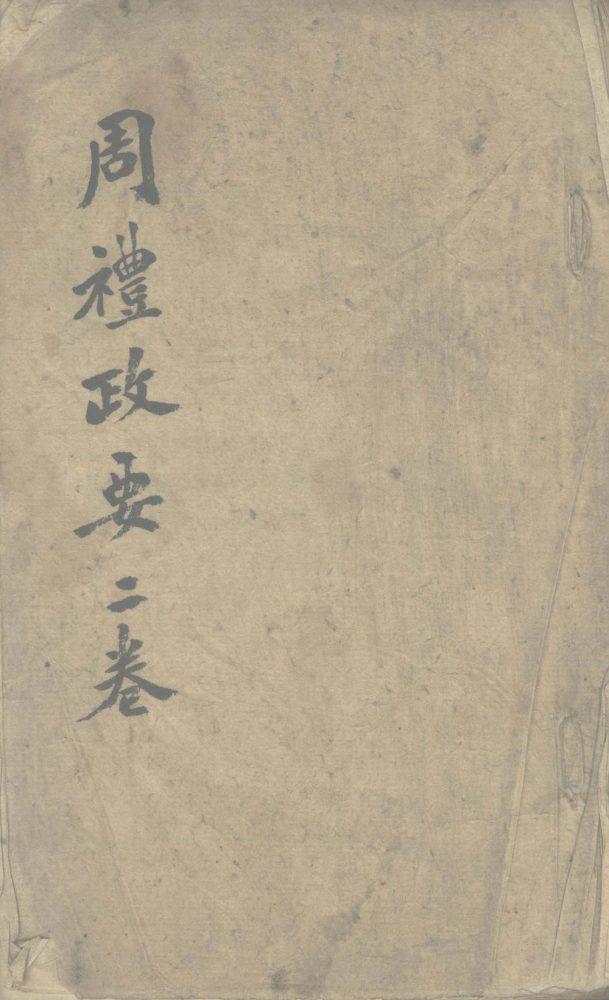 周禮政要二卷